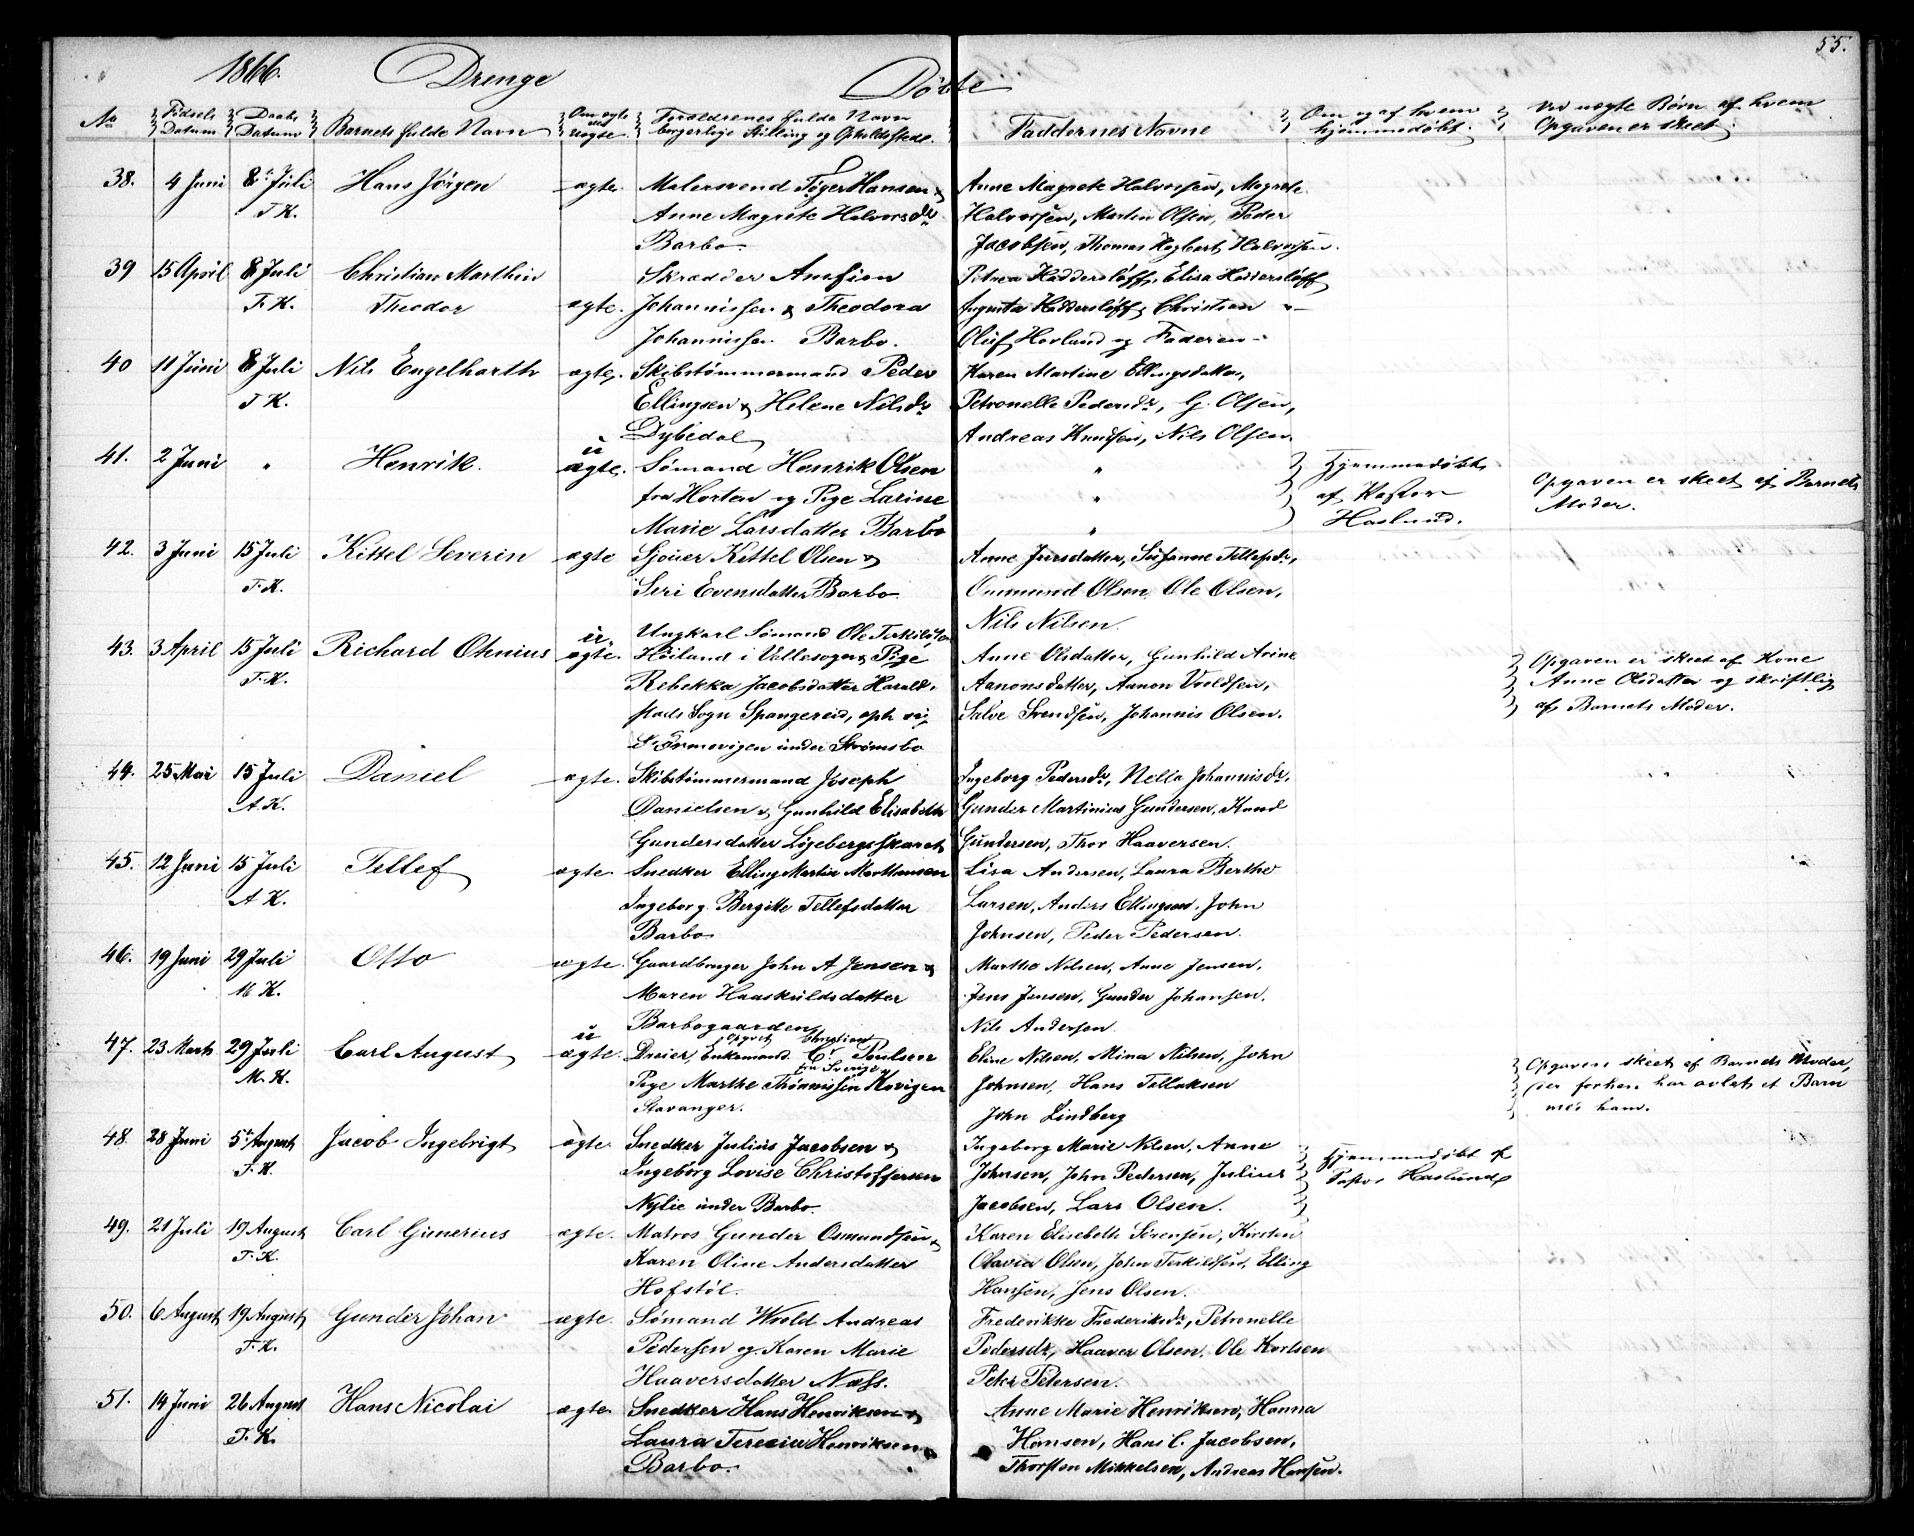 55.
1866. Drenge Døbte
No Fødsels Datum Daabs Datum Barnets fulde Navn Om ægte eller uægte. Forældrenes fulde Navn borgerlige Stilling og Opholdssted. Faddernes Navne Om og af hvem hjemmedøbt. Ved uægte Børn af hvem Opgaven er skeet
38. 4 Juni 8de Juli Hans Jørgen ægte. Malersvend Tøger Hansen & Anne Magrete Halvorsen, Magrete
T. K. Anne Magrete Halvorsdr. Halvorsen, Martin Olsen, Peder
Barbo. Jacobsen, Thomas Hegbart Halvorsen.
39 15 April 8 Juli Christian Marthin Skrædder Amfion Petrea Haddersløff, Elisa Haddersløff
T. K. Theodor ægte. Johannissen & Theodora Augusta Haddersløff, Christian
Johannissen Barbo. Oluf Hovland og Faderen
40 11 Juni 8 Juli Nils Engelharth ægte. Skibstømmermand Peder Karen Martine Ellingsdatter,
T. K. Ellingsen & Helene Nilsdr. Petronelle Pedersdr, G. Olsen,
Dybedal Andreas Knudsen, Nils Olsen.
41. 2 Juni " Henrik. uægte. Sømand Henrik Olsen " Hjemmedøbt
fra Horten og Pige Larine " af Pastor Opgaven er skeet af Barnets
Marie Larsdatter Barbo " Haslund. Moder.
42. 3 Juni 15 Juli Kittel Severin ægte Sjouer Kettel Olsen & Anne Jursdatter, Susanne Tellefsdr,
T. K. Seri Evensdatter Barbo Gunmund Olsen, Ole Olsen,
Nils Nilsen.
43. 3 April 15 Juli Richard Othnius uægte. Ungkarl Sømand Ole Terkildsen
T. K. Høiland i Vellesogn & Pige Anne Olsdatter, Gunhild Arine Opgaven er skeet af Kone
Rebekka Jacobsdatter Harald- Aanonsdatter, Aanon Woldsen, Anne Olsdatter og skriftlig
stads Sogn Spangereid, oph. sig Salve Svendsen, Johannis Olsen. af Barnets Moder.
under Strømsbo
44. 25 Mai 15 Juli Daniel ægte. Skibstømmermand Joseph Ingeborg Pedersdr, Nella Johannisdr,
A. K. Danielsen & Gunhild Elisabeth Gunder Martinius Gundersen, Knud
Gundersdatter Løgebergsskaret Gundersen, Thor Haaversen.
45. 12 Juni 15 Juli Tellef ægte. Snedker Elling Martin Marthinsen Lisa Andersen, Laura Berthe
A. K. Ingeborg Bergitte Tellefsdatter Larsen, Anders Ellingsen, John
Barbo Johnsen, Peder Pedersen.
46. 19 Juni 29 Juli Otto ægte. Gaardbruger John A Jensen & Marthe Nilsen, Anne Jensen,
M. K. Maren Haaskuldsdatter Jens Jensen, Gunder Johansen,
Barbogaarden Nils Andersen
47. 23 Marts 29 Juli Carl August uægte. Dreier, Enkemand Chr. Christian Poulsen Eline Nilsen, Mina Nilsen, John Opgaven skeet af Barnets Moder,
M. K. fra Sverige Pige Marthe Thomissen Kovigen Johnsen, Hans Tellaksen der forhen har avlet et Barn
Stavanger. John Lindberg med ham.
48. 28 Juni 5te August Jacob Ingebrigt ægte. Snedker Julius Jacobsen & Ingeborg Marie Nilsen, Anne Hjemmedøbt af
T. K. Ingeborg Lovise Christoffersen Johnsen, John Pedersen, Julius Pastor Haslund
Nylie under Barbo. Jacobsen, Lars Olsen.
49. 21 Juli 19 August Carl Gunerius ægte. Matros Gunder Osmundsen & Karen Elisebeth Sørensen, Kirsten
T. K. Karen Oline Andersdatter Olavia Olsen, John Terkildsen, Elling
Hofstøl. Hansen, Jens Olsen.
50. 6 August 19 August Gunder Johan ægte. Sømand Wrold Andreas Frederikke Frederiksdr, Petronelle
T. K. Pedersen og Karen Marie Pedersdr, Haaver Olsen, Ole Karlsen
Haaversdatter Næss. Peter Petersen.
51. 14 Juni 26 August Hans Nicolai ægte. Snedker Hans Henriksen & Anne Marie Henriksen, Hanna
T. K. Laura Teresia Henriksen Hansen, Hans C. Jacobsen,
Barbo. Thorsten Mikkelsen, Andreas Hansen.